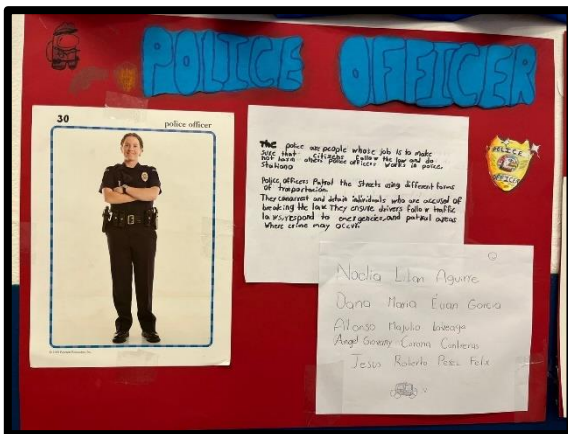 POLICE OFFICER
30
police officer
The police are people whose job is to make
sure that citizens follow the law and do
not harm others police officers works in police
Stations
Police officers Patrol the streets using different forms
of trasportación.
They can arrest and detain individuals who are accused of
breaking the law. They ensure drivers follow traffic
laws, respond to emergencies, and patrol areas
where crime may occur.
POLICE
OFFICER
Noelia Lilian Aguirre
Dana Maria Evan Garcia
Alfonso
Angel Giovanny Corona Contreras
Jesus Roberto Perez Felix